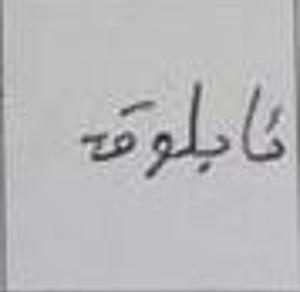 ئابلوقە